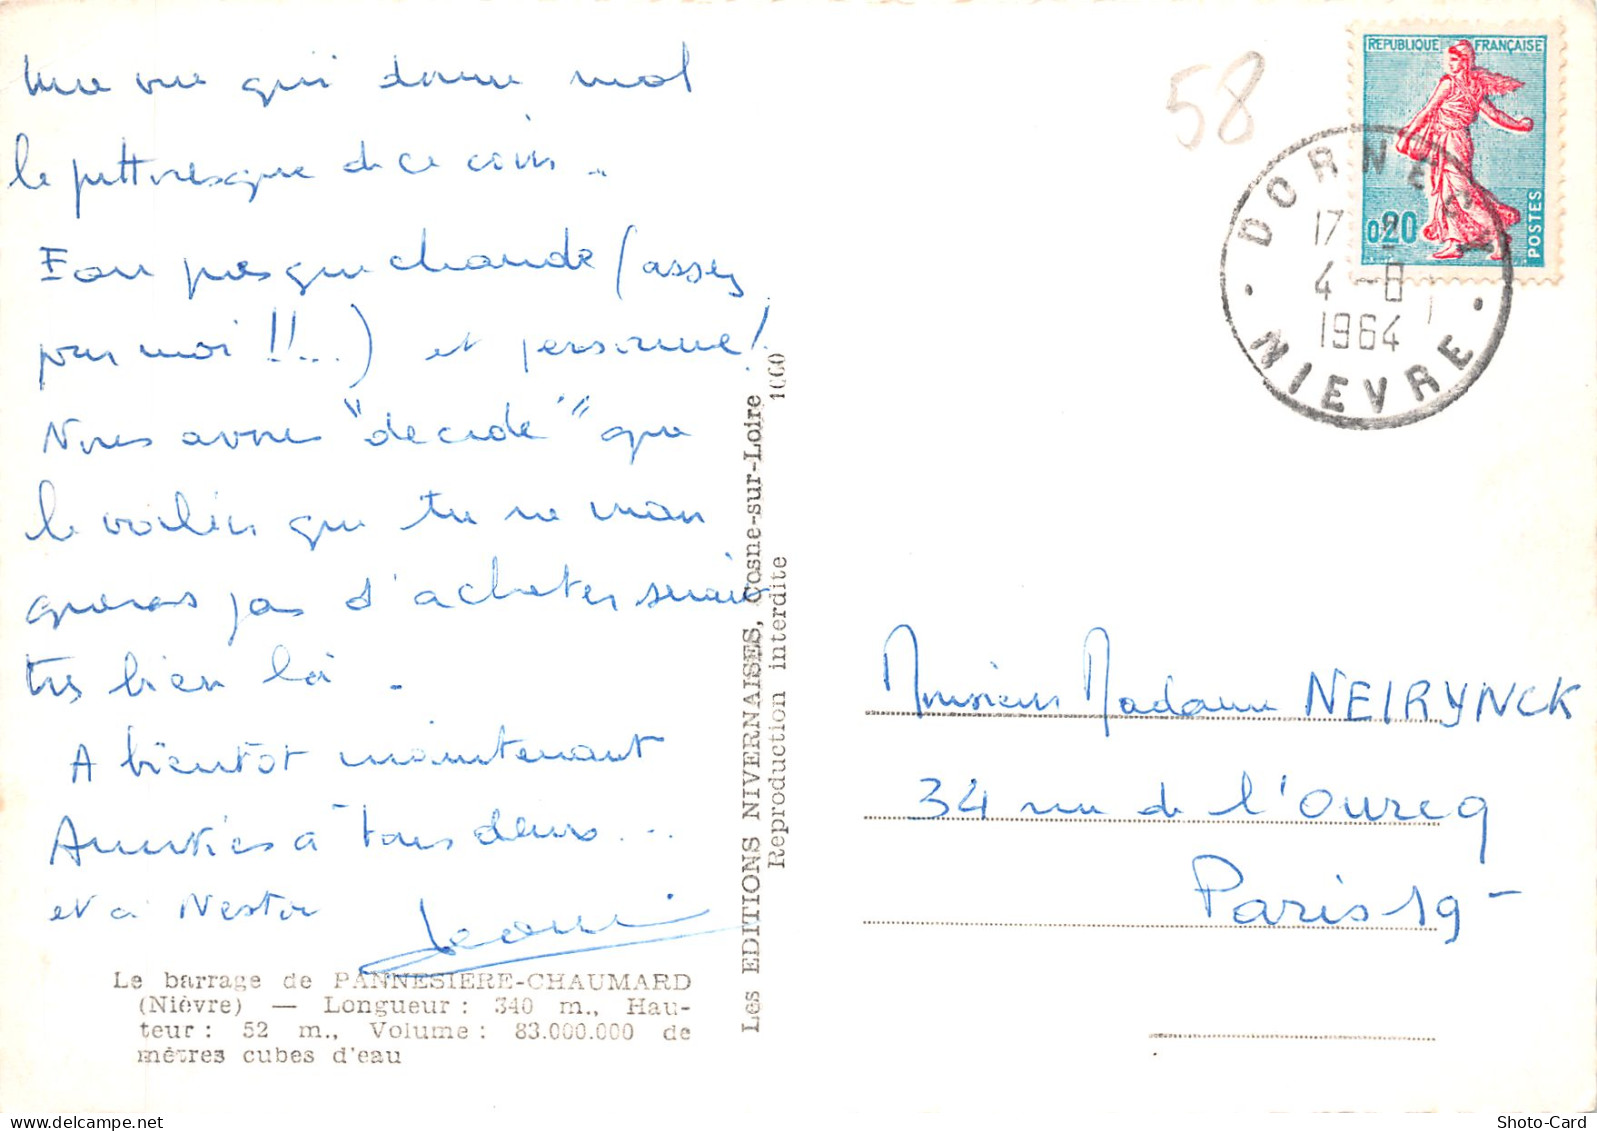 Une vue qui donne mal
le pittoresque de ce coin..
Eau presque chaude (assez
pour moi !!...) et personne!
Nous avons "décidé" que
le voilier que tu ne man
queras pas d'acheter serait
très bien là.
A bientôt maintenant
Amitiés à tous deux...
et à Nestor
Le barrage de PANNESIERE-CHAUMARD
(Nièvre) — Longueur : 340 m., Hau-
teur : 52 m., Volume : 83.000.000 de
mètres cubes d'eau
Les EDITIONS NIVERNAISES, Cosne-sur-Loire
Reproduction interdite 1060
58
REPUBLIQUE FRANÇAISE
0,20
POSTES
DORNECY
17
4 - 8
1964
NIEVRE
Monsieur Madame NEIRYNCK
34 rue de l'Ourcq
Paris 19-
Shoto-Card